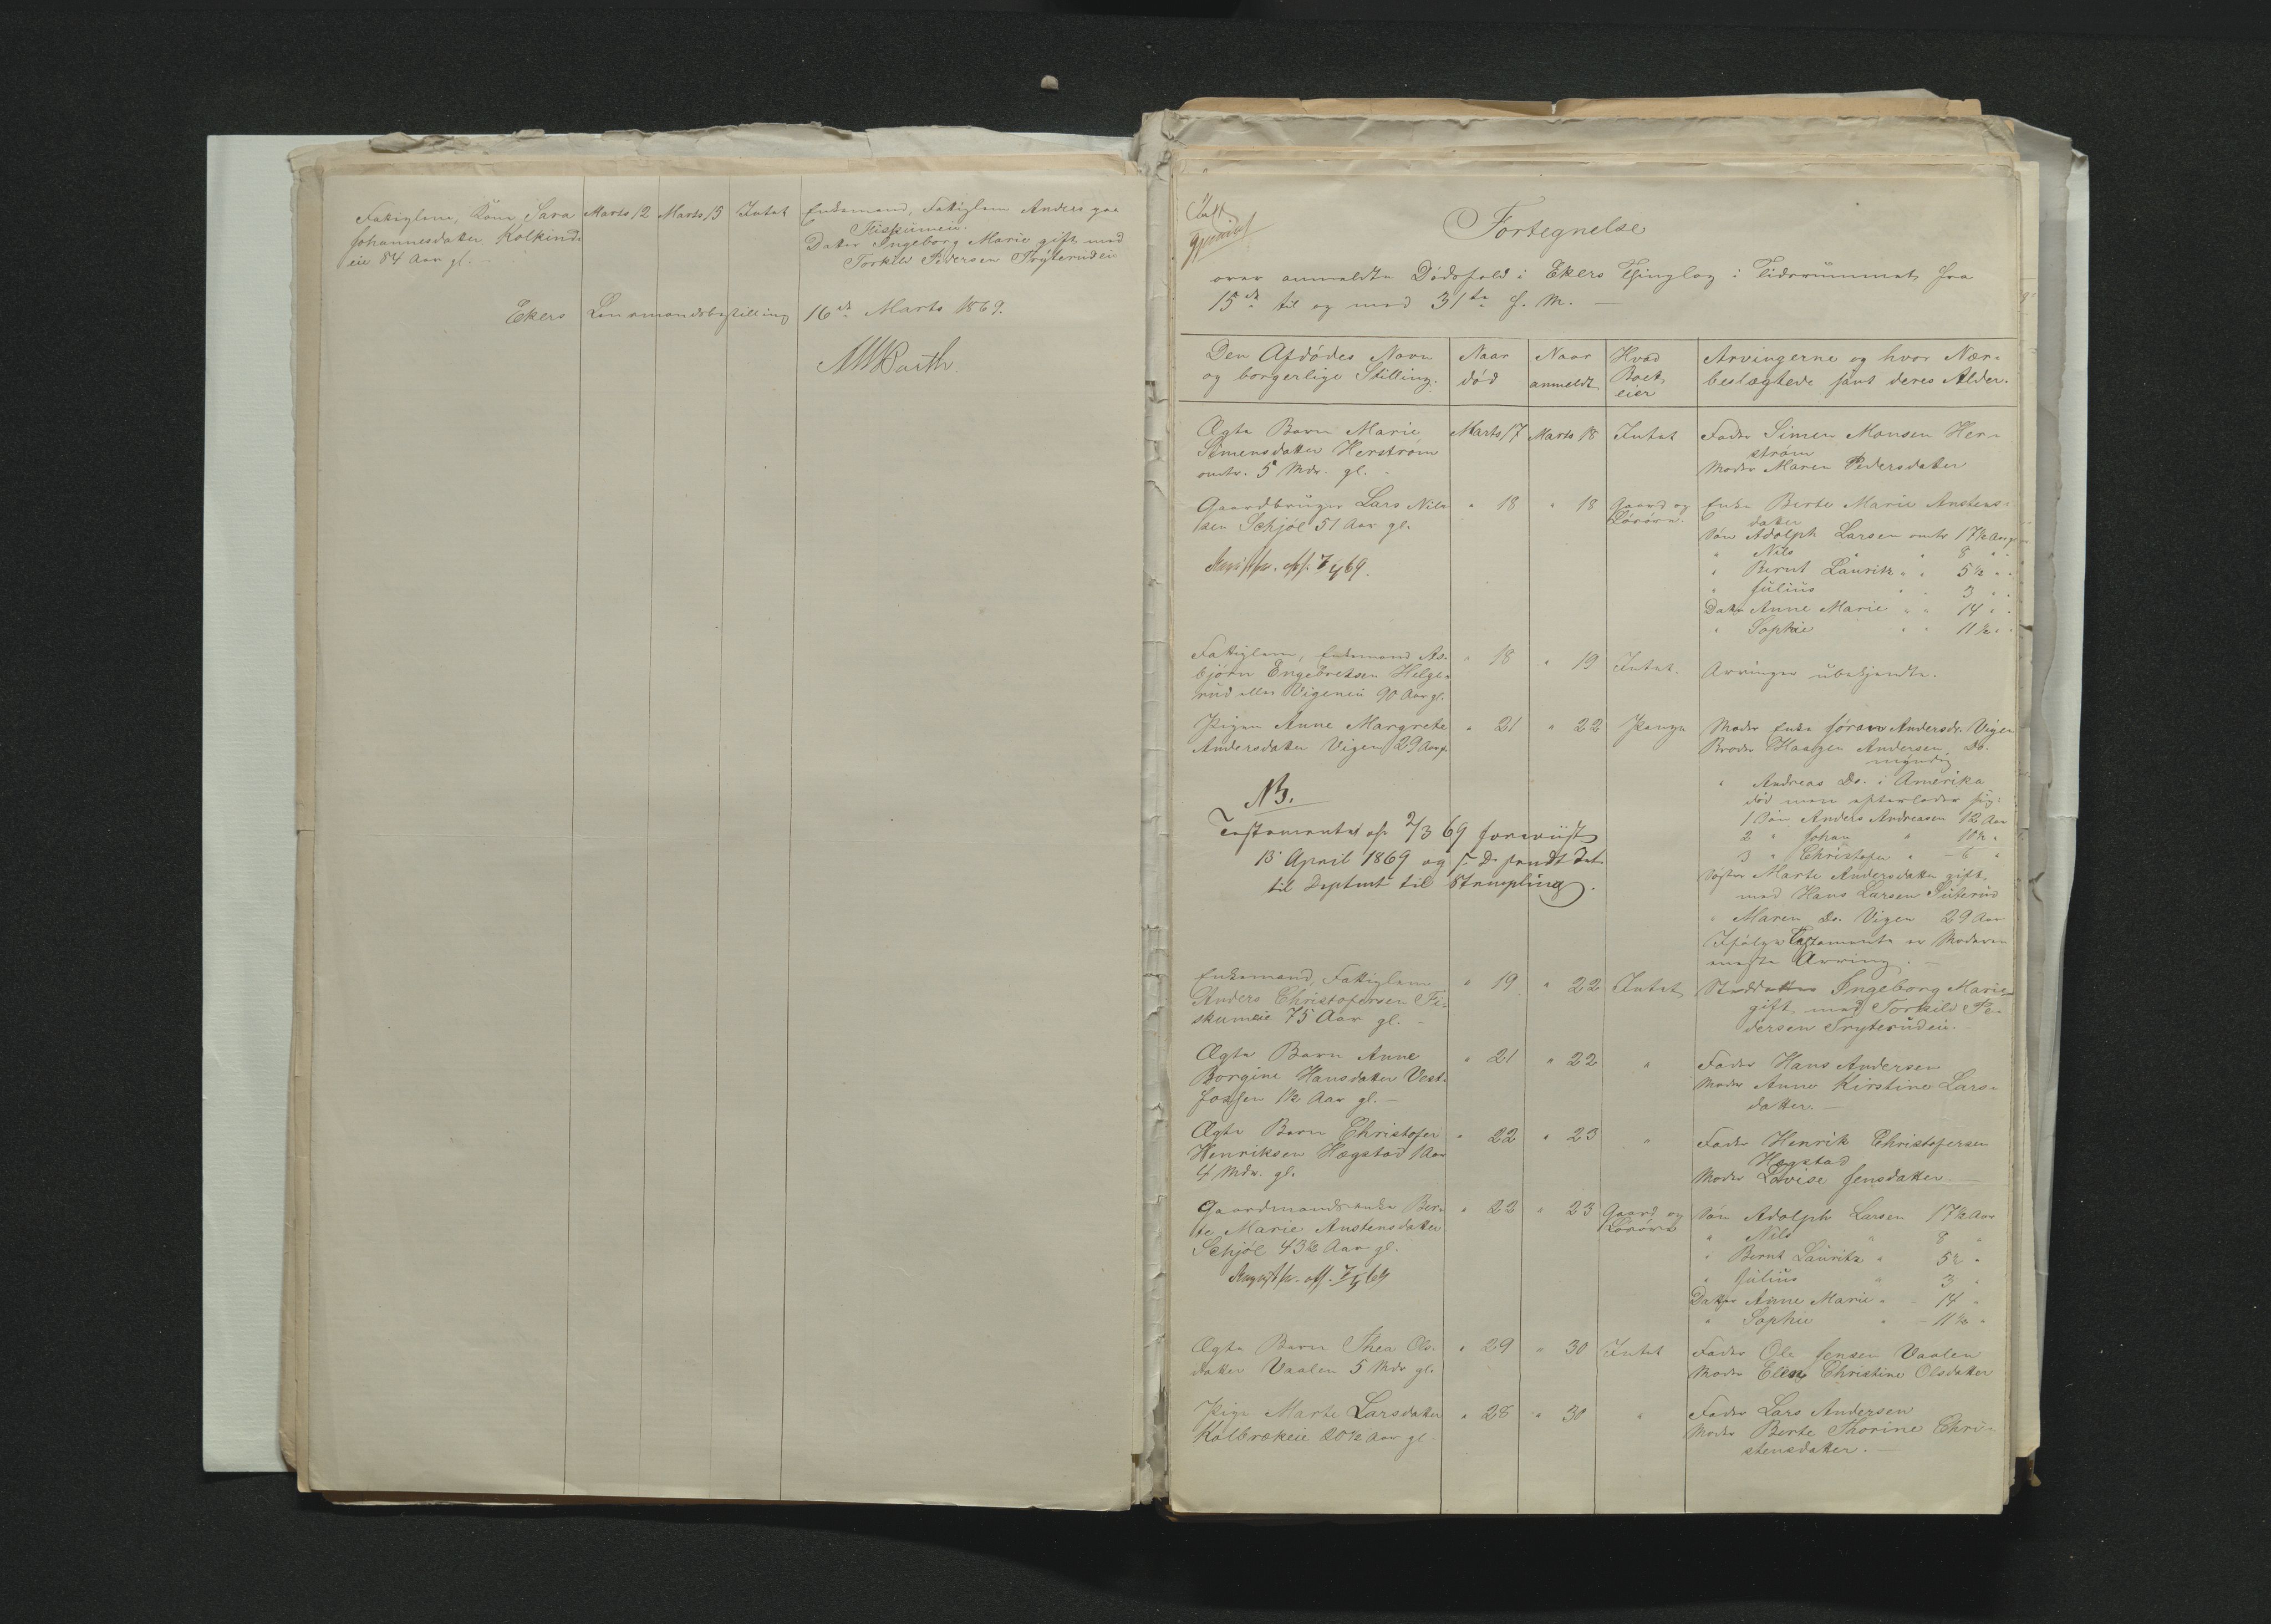 Fattiglem, Kone Sara Marts 12 Marts 15 Intet Enkemand, Fattiglem Anders paa
Johannesdatter Kolkind- Fiskumeie.
eie 84 Aar gl. Datter Ingeborg Marie gift med
Torkild Pedersen Tryterudeie
Ekers Lensmandsbestilling 16de Marts 1869.
Barth.
Fortegnelse
over anmeldte Dødsfald i Ekers Thinglag i Tidsrummet fra
15de til og med 31te f. M.
Den Afdødes Navn Naar Naar Hvad Arvingerne og hvor Nær-
og borgerlige Stilling. død anmeldt Boet beslægtede samt deres Alder.
eier
Ægte Barn Marie Marts 17 Marts 18 Intet Fader Simen Monsen Her-
Simensdatter Herstrøm strøm
omtr. 5 Mdr. gl. Moder Maren Pedersdatter
Gaardbruger Lars Nils- " 18 " 18 Gaard og Enke Berte Marie Anstens-
sen Schjøl 51 Aar gl. Løsøre. datter
Søn Adolph Larsen omtr 17½ Aar gl
" Nils " " 8 " "
" Bernt Lauritz " " 5½ " "
" Julius " " 3 " "
Datter Anne Marie " " 14 " "
" Sophie " " 11½ " "
Fattiglem, Enkemand As- " 18 " 19 Intet. Arvinger ubekjendte.
bjørn Engebretsen Helge-
rud eller Vigeneie 90 Aar gl.
Pigen Anne Margrete " 21 " 22 Penge Moder Enke Jøran Andersdr. Vigen
Andersdatter Vigen 29 Aar gl. Broder Haagen Andersen Do.
myndig
" Andreas Do. i Amerika
død men efterlader sig:
1 Søn Anders Andreasen 12 Aar
2 " Johan " 10½ "
3 " Christofer " 6 "
NB.
Testamentet af 2/3 69 foreviist
13 April 1869 og s. D. sendt det
til Deptmt til Stempling.
Søster Marte Andersdatter gift
med Hans Larsen
" Maren Do. Vigen 29 Aar
Ifølge Testamente er Moderen
eneste Arving.
Enkemand, Fattiglem " 19 " 22 Intet Steddatter Ingeborg Marie
Anders Christofersen Fi- gift med Torkild Pe-
skumeie 75 Aar gl. dersen Tryterudeie.
Ægte Barn Anne " 21 " 22 " Fader Hans Andersen
Borgine Hansdatter Vest- Moder Anne Kirstine Lars-
fossen 1½ Aar gl. datter.
Ægte Barn Christofer " 22 " 23 " Fader Henrik Christofersen
Henriksen Hægstad 1 Aar Hægstad
4 Mdr. gl. Moder Lovise Jensdatter.
Gaardmandsenke Ber- " 22 " 23 Gaard og Søn Adolph Larsen 17½ Aar
te Marie Anstensdatter Løsøre " Nils " 8 "
Schjøl 43½ Aar gl. " Bernt Lauritz " 5½ "
" Julius " 3 "
Datter Anne Marie " 14 "
" Sophie " 11½ "
Ægte Barn Thea Ols- " 29 " 30 Intet Fader Ole Jensen Vaalen
datter Vaalen 5 Mdr gl. Moder Elen Christine Olsdatter
Pige Marte Larsdatter " 28 " 30 " Fader Lars Andersen
Kolbrekeie 20½ Aar gl. Moder Berte Thorine Chri-
stensdatter.